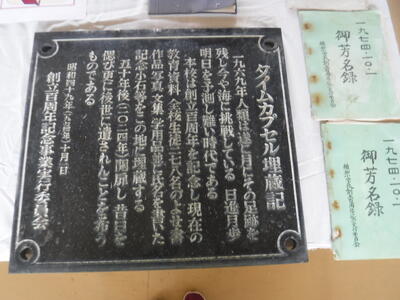 タイムカプセル埋蔵記
一九六九年人類は遂に月にその足跡を
残し今や海に挑戦している 日進月歩
明日を予測し難い時代である
本校は創立百周年を記念し現在の
教育資料(全校生徒二七八名のよせ書
作品 写真 文集 学用品等)と氏名を書いた
記念小石等をこの地に埋蔵する
五十年後(二〇二四年)開扉し昔日を
偲び更に後世に遺されんことを希う
ものである
昭和四十九年(一九七四年)十月一日
創立百周年記念事業実行委員会
一九七四・一〇・一
御芳名録
一九七四・一〇・一
御芳名録